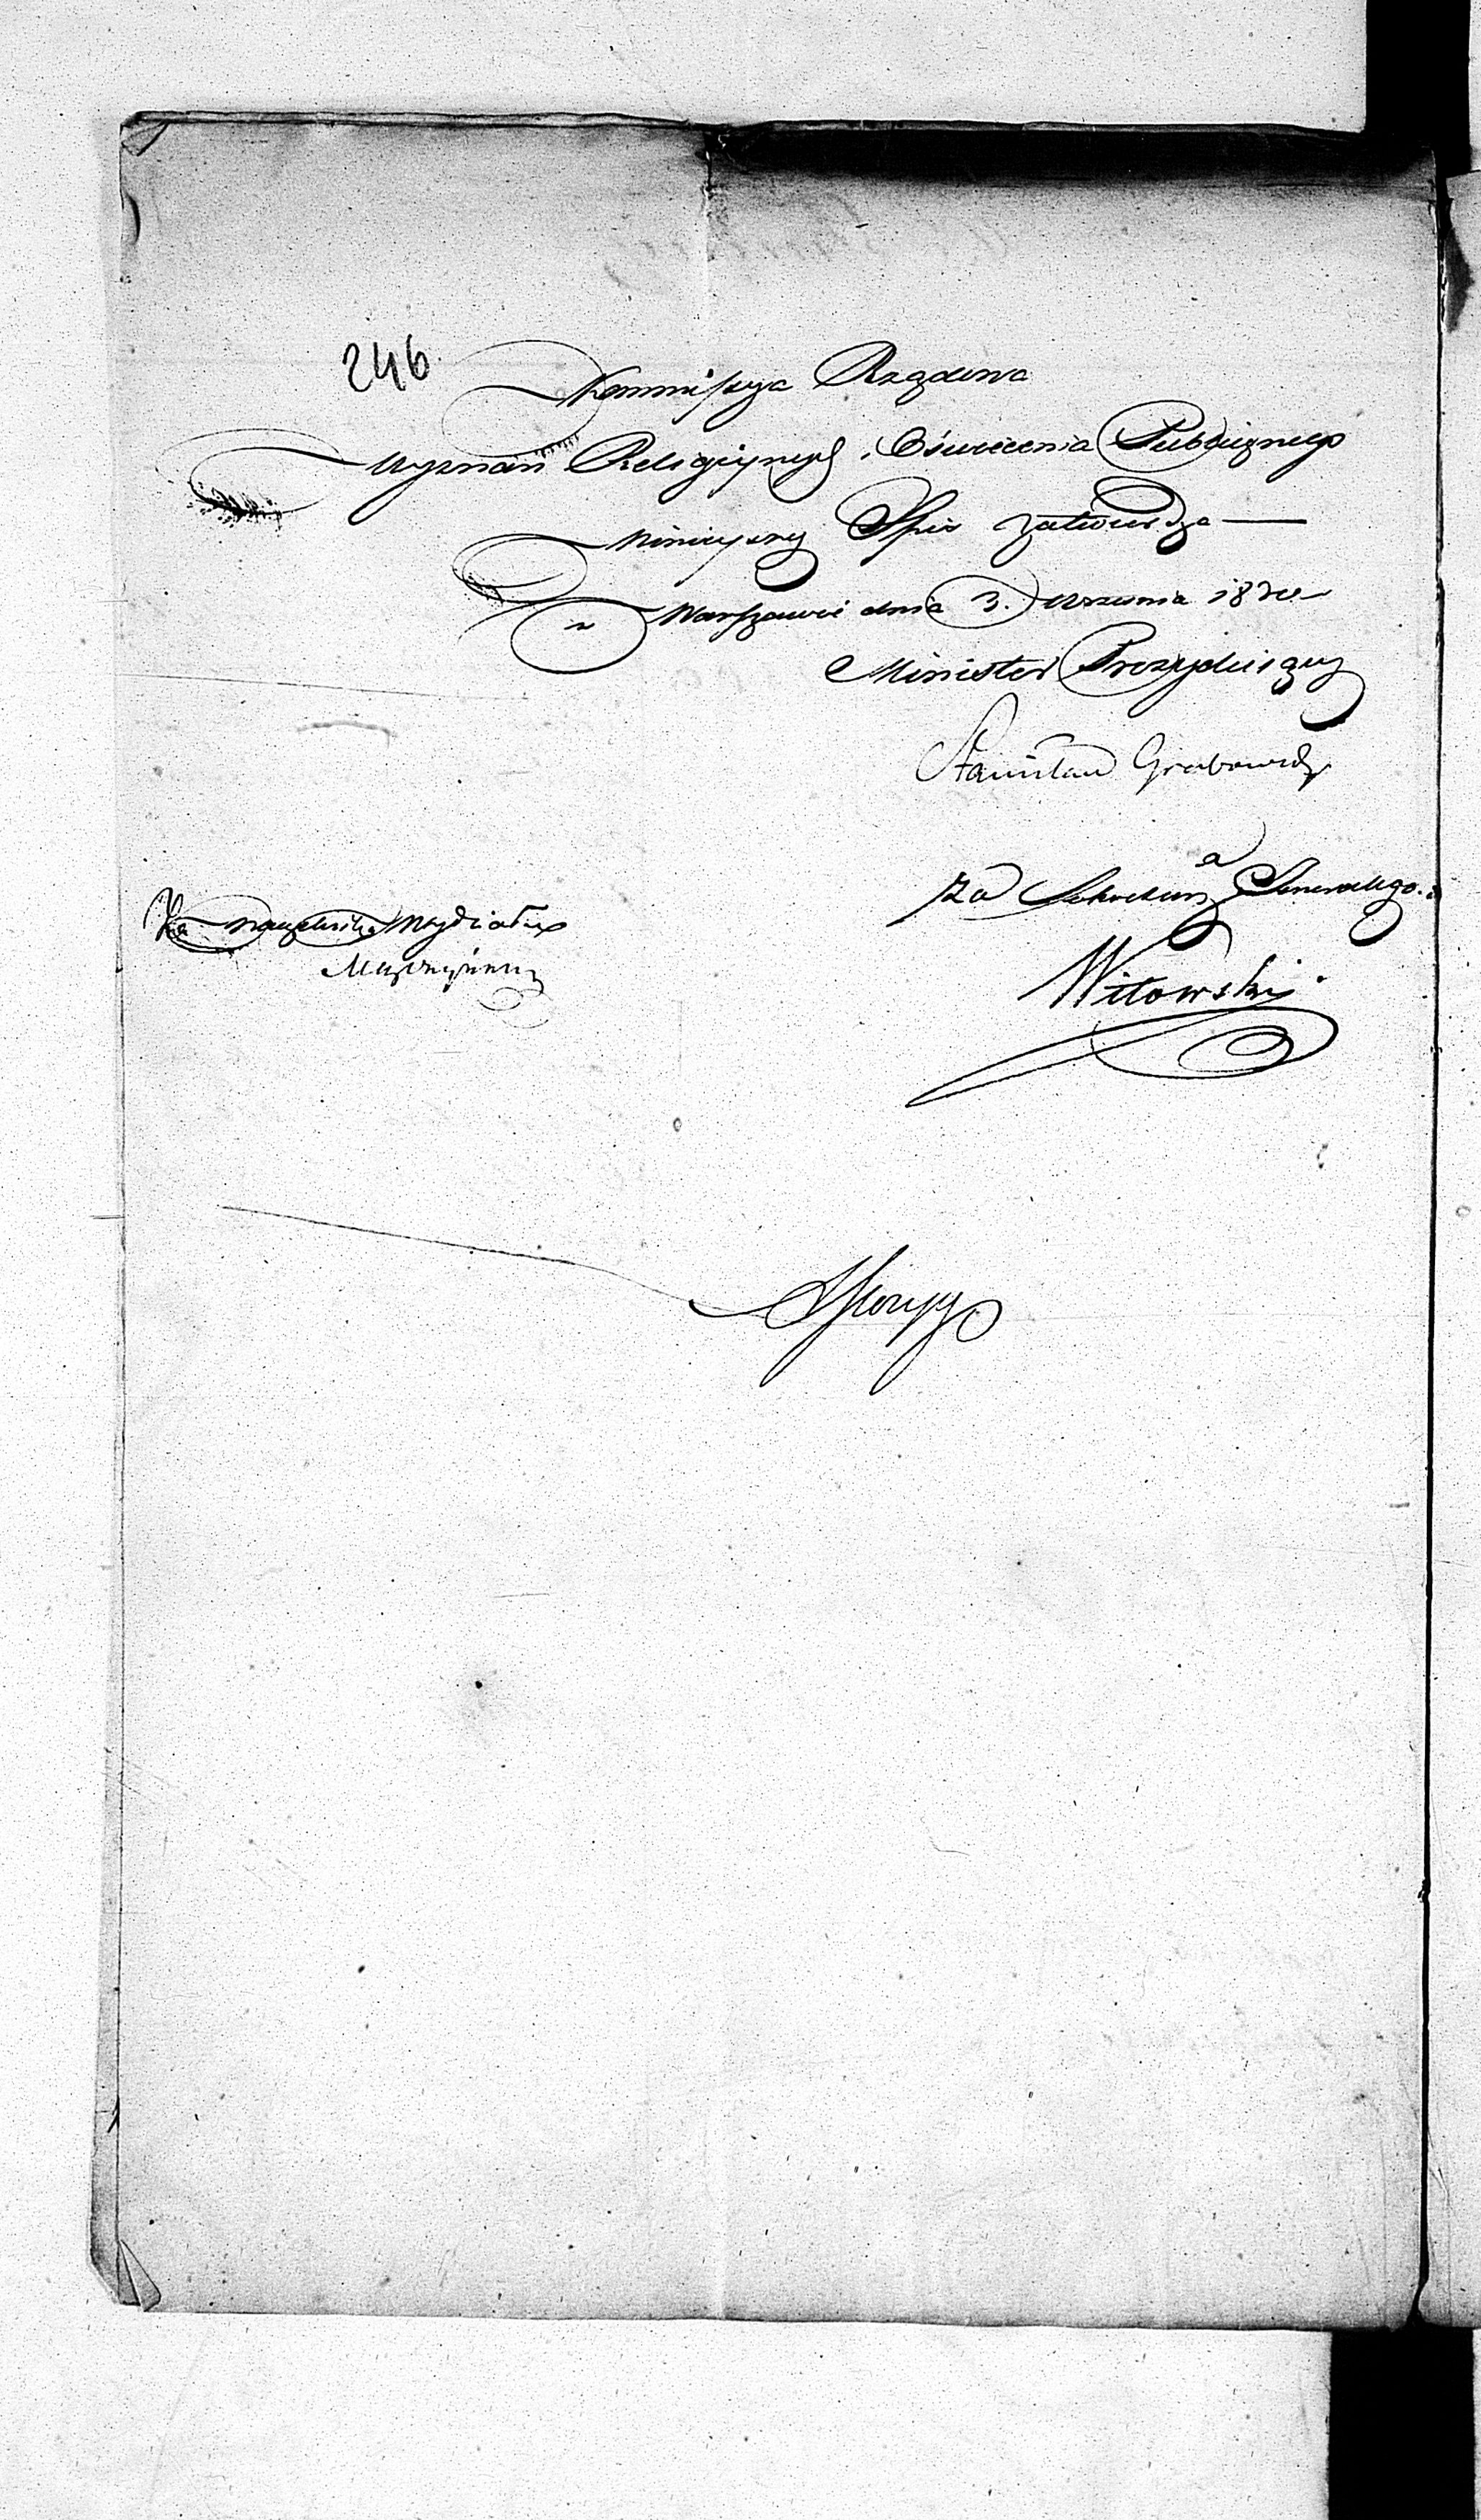 246.
Kommissya Rządowa
Wyznań Religiynych i Oświecenia Publicznego
Ninieyszy Spis zatwierdza —
w Warszawie dnia 3. Września
Minister Prezyduiący
Stanisław Grabowski
Za Sekretarza Generalnego.
Witowski
Za Naczelnika Wydziału